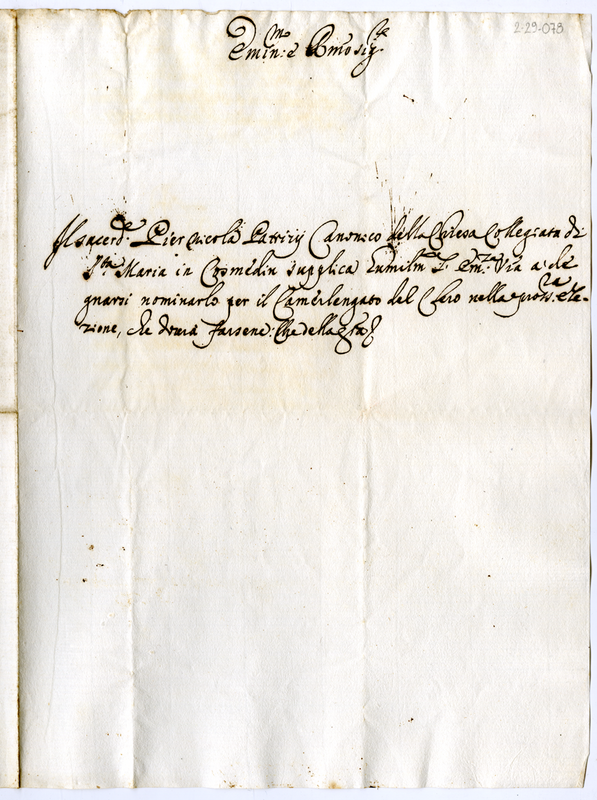 2-29-073
Emin:mo e Rmo Sigre
Il sacerd: Pier Nicola Patrizij Canonico della Chiesa Collegiata di
Sta Maria in Cosmedin supplica humilmte Emza Vra a de
gnarsi nominarlo per il Camerlengato del Clero nella prossa ele-
zione, che dovrà farsene: Che della